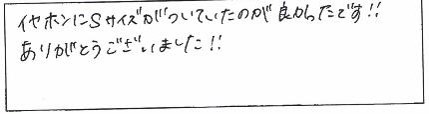 イヤホンにSサイズがついていたのが良かったです!!
ありがとうございました!!